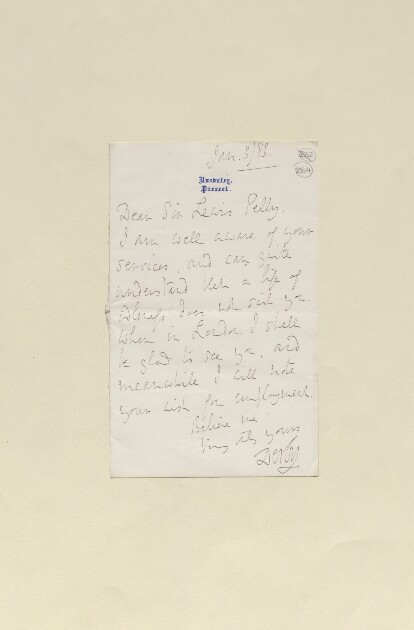 Jan. 3/83.
Knowsley,
Prescot.
Dear Sir Lewis Pelly,
I am well aware of your
services, and can quite
understand that a life of
idleness does not suit you.
When in London I shall
be glad to see you, and
meanwhile I will note
your wish for employment.
Believe me
Very truly yours
Derby